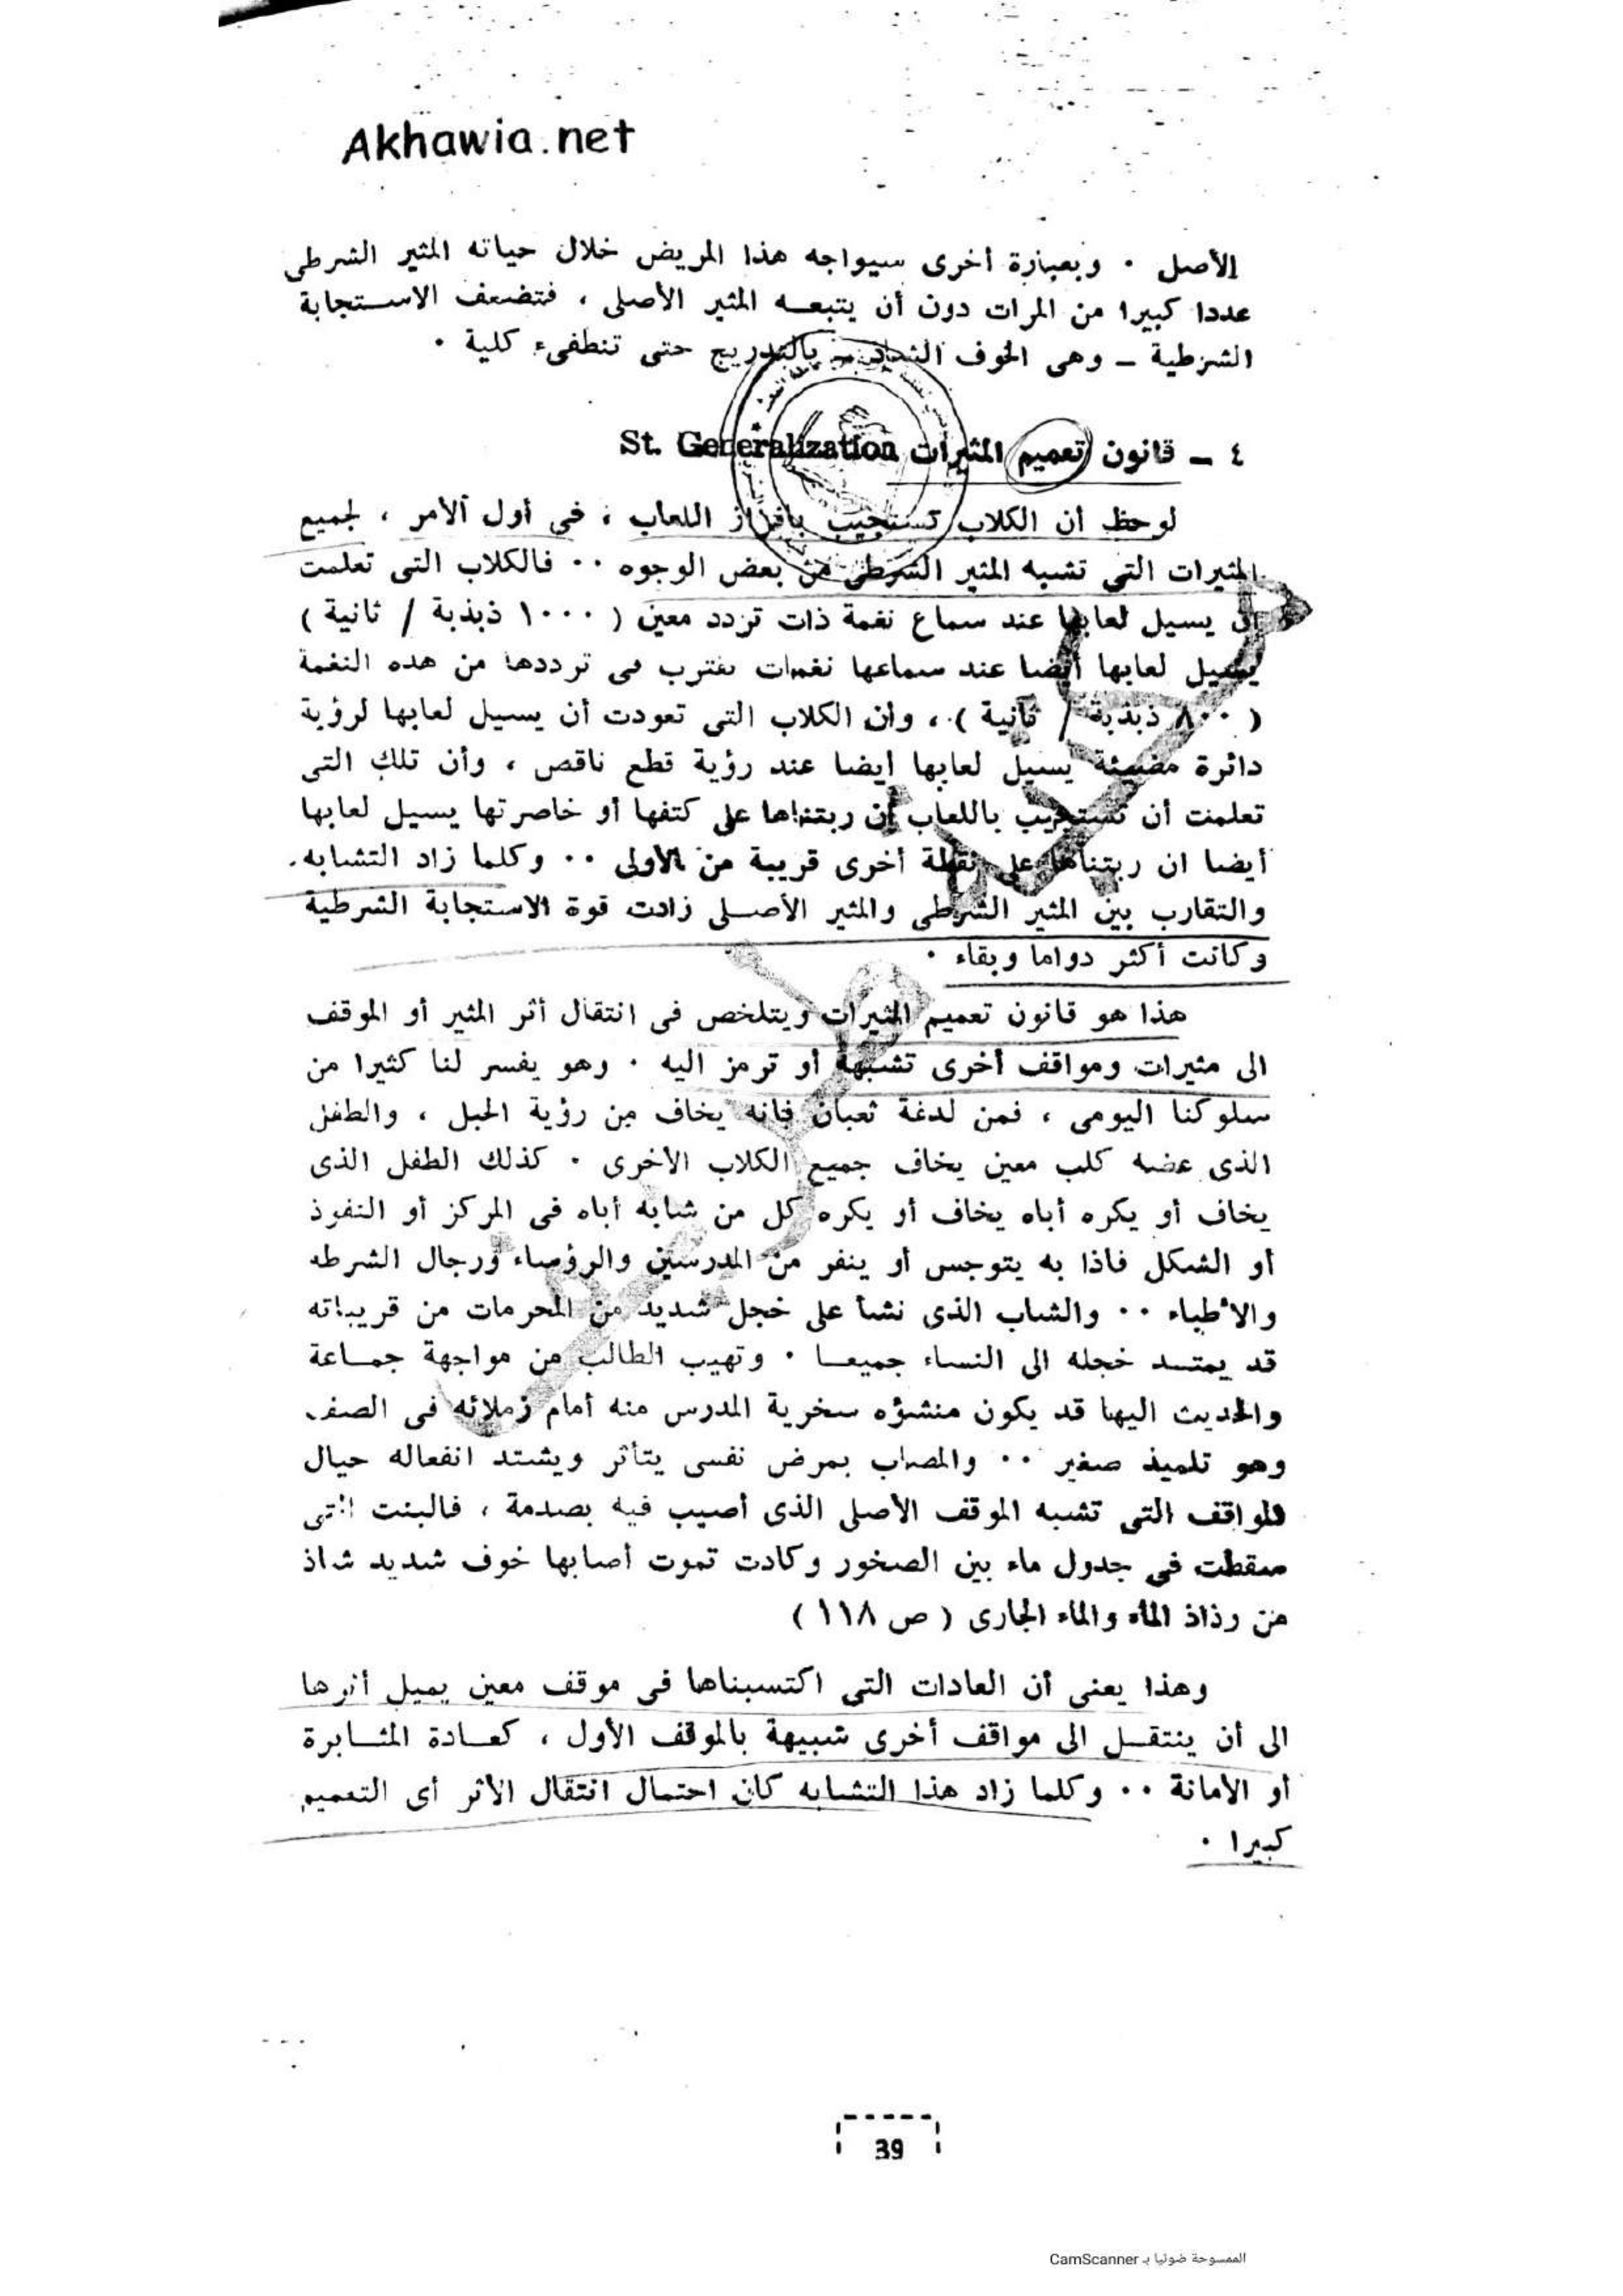 Akhawia.net
الأصل ٠ وبعبارة أخرى سيواجه هذا المريض خلال حياته المثير الشرطى
عددا كبيرا من المرات دون أن يتبعه المثير الأصلى ، فتضعف الاستجابة
الشرطية ـ وهى الخوف الشاذ ـ بالتدريج حتى تنطفىء كلية ٠
٤ ـ قانون تعميم المثيرات St. Generalization
لوحظ أن الكلاب تستجيب بافراز اللعاب ، فى أول الأمر ، لجميع
المثيرات التى تشبه المثير الشرطى من بعض الوجوه ٠٠ فالكلاب التى تعلمت
أن يسيل لعابها عند سماع نغمة ذات تردد معين ( ١٠٠٠ ذبذبة / ثانية )
يسيل لعابها أيضا عند سماعها نغمات تقترب فى ترددها من هده النغمة
( ٨٠٠ ذبذبة / ثانية ) ، وان الكلاب التى تعودت أن يسيل لعابها لرؤية
دائرة مضيئة يسيل لعابها ايضا عند رؤية قطع ناقص ، وأن تلك التى
تعلمت أن تستجيب باللعاب أن ربتناها على كتفها أو خاصرتها يسيل لعابها
أيضا ان ربتناها على نقطة أخرى قريبة من الأولى ٠٠ وكلما زاد التشابه
والتقارب بين المثير الشرطى والمثير الأصلى زادت قوة الاستجابة الشرطية
وكانت أكثر دواما وبقاء ٠
هذا هو قانون تعميم المثيرات ويتلخص فى انتقال أثر المثير أو الموقف
الى مثيرات ومواقف أخرى تشبهه أو ترمز اليه ٠ وهو يفسر لنا كثيرا من
سلوكنا اليومى ، فمن لدغة ثعبان فانه يخاف من رؤية الحبل ، والطفل
الذى عضه كلب معين يخاف جميع الكلاب الأخرى ٠ كذلك الطفل الذى
يخاف أو يكره أباه يخاف أو يكره كل من شابه أباه فى المركز أو النفوذ
أو الشكل فاذا به يتوجس أو ينفر من المدرسين والرؤساء ورجال الشرطه
والأطباء ٠٠ والشاب الذى نشأ على خجل شديد من المحرمات من قريباته
قد يمتد خجله الى النساء جميعا ٠ وتهيب الطالب من مواجهة جماعة
والحديث اليها قد يكون منشؤه سخرية المدرس منه أمام زملائه فى الصف
وهو تلميذ صغير ٠٠ والمصاب بمرض نفسى يتأثر ويشتد انفعاله حيال
المواقف التى تشبه الموقف الأصلى الذى أصيب فيه بصدمة ، فالبنت التى
سقطت فى جدول ماء بين الصخور وكادت تموت أصابها خوف شديد شاذ
من رذاذ الماء والماء الجارى ( ص ١١٨ )
وهذا يعنى أن العادات التى اكتسبناها فى موقف معين يميل أثرها
الى أن ينتقل الى مواقف أخرى شبيهة بالموقف الأول ، كعادة المثابرة
أو الأمانة ٠٠ وكلما زاد هذا التشابه كان احتمال انتقال الأثر أى التعميم
كبيرا ٠
39
الممسوحة ضوئيا بـ CamScanner